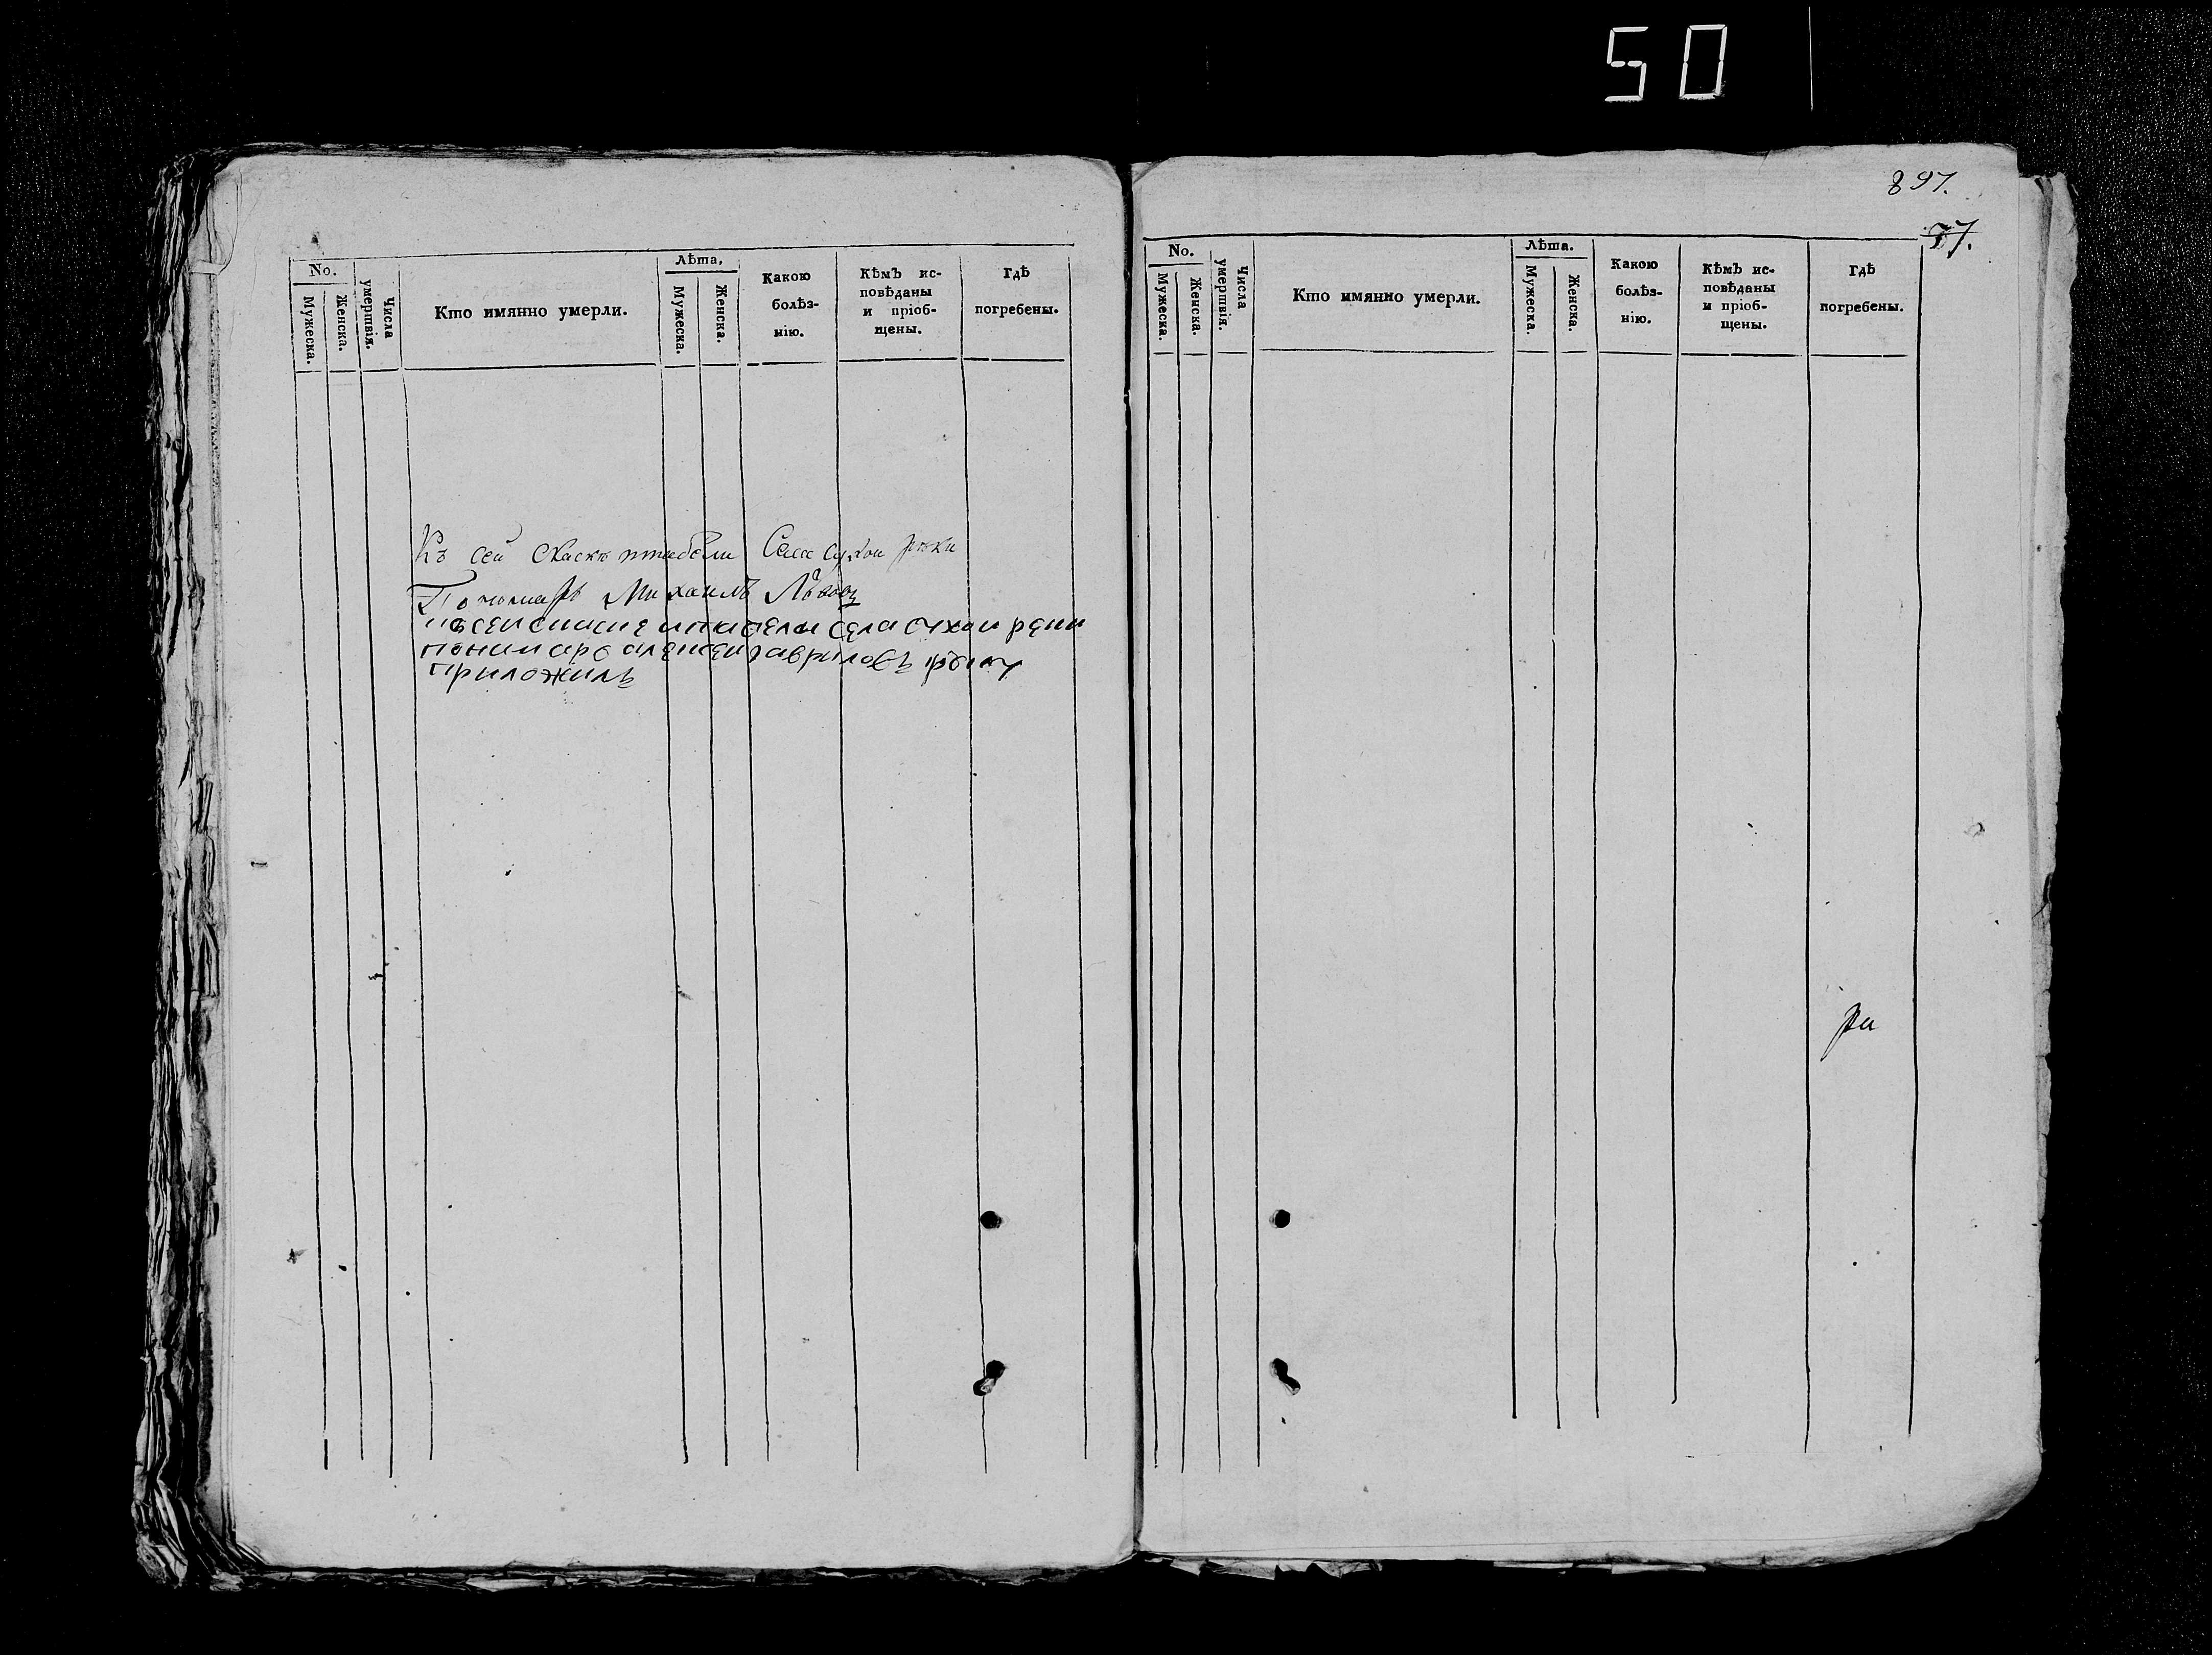 50
897.
77.
No.
Мужеска.
Женска.
Числа умертвія.
Кто имянно умерли.
Лѣта.
Мужеска.
Женска.
Какою болѣз-
нію.
Кѣмъ ис-
повѣданы
и пріоб-
щены.
Гдѣ
погребены.
Къ сей скаскѣ Села Сухои рѣки
Михаилъ Львовъ
села сухои реки
гавриловъ руку
приложилъ
No.
Мужеска.
Женска.
Числа умертвія.
Кто имянно умерли.
Лѣта.
Мужеска.
Женска.
Какою
болѣз-
нію.
Кѣмъ ис-
повѣданы
и пріоб-
щены.
Гдѣ
погребены.
ра